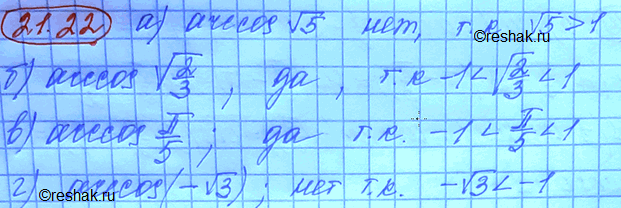 21.22 а) arccos √5 нет, т.к. √5 > 1
б) arccos √(2/3), да, т.к -1 < √(2/3) < 1
в) arccos π/5; да т.к. -1 < π/5 < 1
г) arccos(-√3); нет т.к. -√3 < -1
©reshak.ru
©reshak.ru